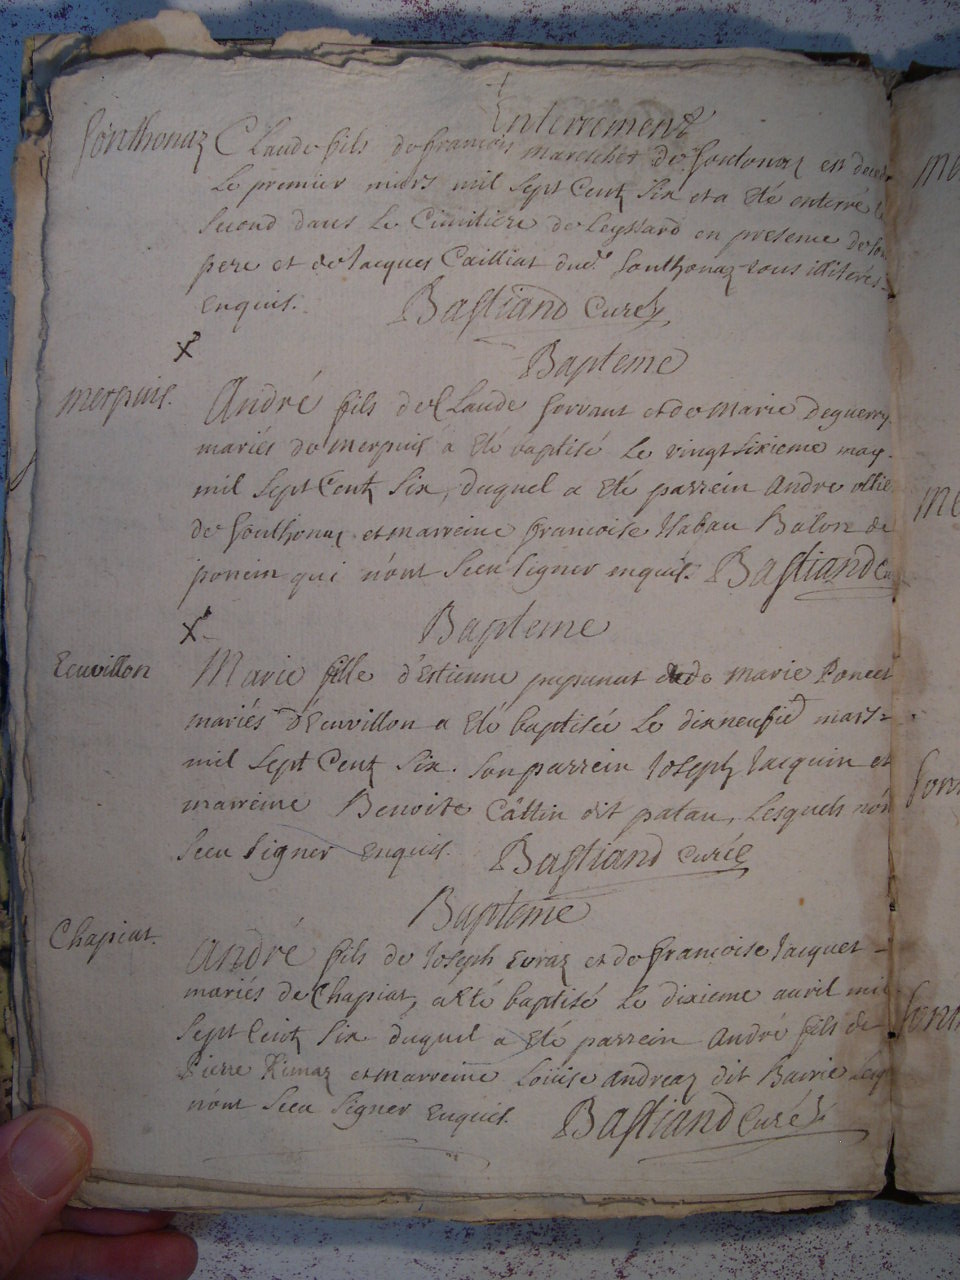 Enterrement
fonthonaz Claude fils de francois mareschet de fontonaz est decedé
Le premier mars mil sept Cent six et a eté enterré le
second dans Le Cimitiere de Leyssard en presence de son
pere et de Jacques Cailliat dud. fonthonaz tous illiterés
enquis. Bastiand Curé
Bapteme
merpuis. André fils de Claude servant et de Marie Deguerry
mariés de merpuis a eté baptisé Le vingt sixieme may
mil sept Cent six, duquel a eté parrein Andre ollie
de fonthonaz et marreine francoise Balon de
poncin qui n'ont sceu signer enquis. Bastiand Cu
Bapteme
Ecuvillon Marie fille d'Estienne et de marie Poncet
mariés d'Ecuvillon a eté baptisée Le dixneufie mars
mil sept Cent six. son parrein Joseph Jacquin et
marreine Benoite Cattin dit patau, Lesquels n'ont
sceu signer enquis. Bastiand curé
Bapteme
Chapiat. André fils de Joseph Evraz et de francoise Jacquet
mariés de Chapiat, a eté baptisé Le dixieme avril mil
sept Cent six duquel a eté parrein André fils de
Pierre et marreine Louise Andreaz dit Bavrie
n'ont sceu signer enquis. Bastiand Curé